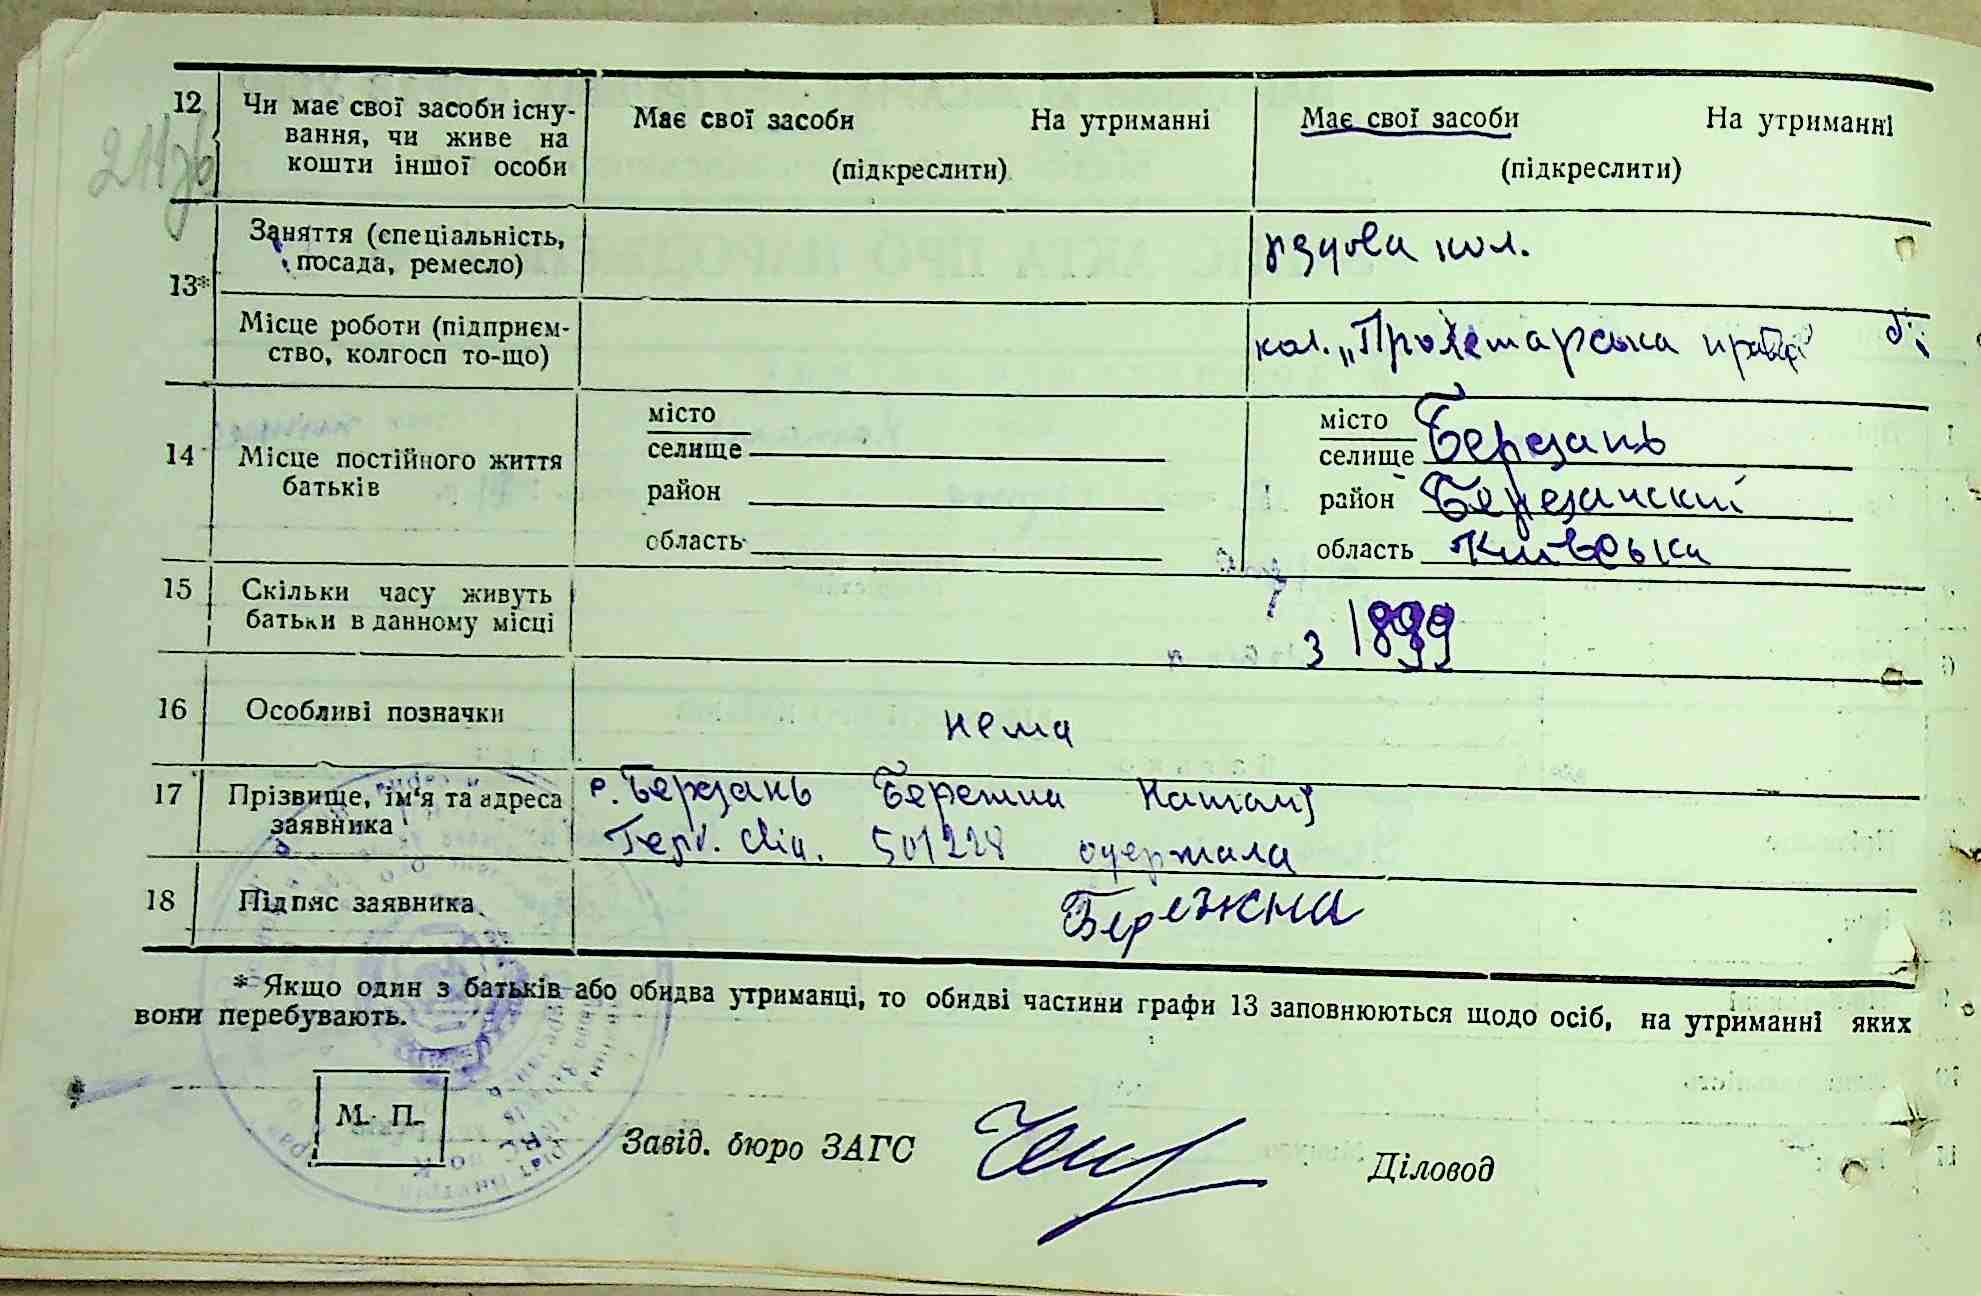 12 Чи має свої засоби існу-
вання, чи живе на
кошти іншої особи
Має свої засоби На утриманні
(підкреслити)
Має свої засоби На утриманні
(підкреслити)
13*
Заняття (спеціальність,
посада, ремесло)
рядова кол.
Місце роботи (підприєм-
ство, колгосп то-що)
кол. „Пролетарська правда"
14 Місце постійного життя
батьків
місто
селище
район
область
місто
селище Березань
район Березанский
область Київська
15 Скільки часу живуть
батьки в данному місці
з 1899
16 Особливі позначки
нема
17 Прізвище, ім'я та адреса
заявника
с. Березань Бережна
501228 одержала
18 Підпис заявника
Бережна
* Якщо один з батьків або обидва утриманці, то обидві частини графи 13 заповнюються щодо осіб, на утриманні яких
вони перебувають.
М. П.
Завід. бюро ЗАГС
Діловод